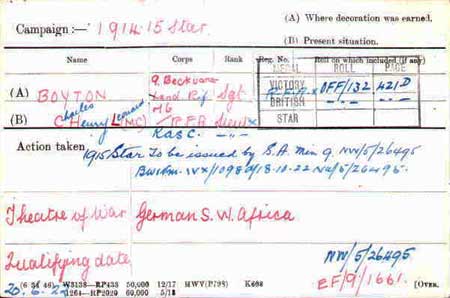 Campaign :— 1914-15 Star
(A) Where decoration was earned.
(B) Present situation.
Name Corps Rank Reg. No. Roll on which included (if any)
MEDAL ROLL PAGE
(A) BOYTON Land Rif Sgt VICTORY OFF/132 421D
BRITISH -"- -"-
(B) Charles Henry Leonard (MC) R.F.A. STAR
R.A.S.C. -"-
Action taken 1915 Star To be issued by S.A. Min 9. NW/5/26495
NW/5/26495.
Theatre of War German S. W. Africa
Qualifying date
NW/5/26495
EF/9/1661.
20.6.22
(6 34 46) W3138—RP435 50,000 12/17 HWV(P798) K608
1264—RP2020 60,000 5/18 [OVER.